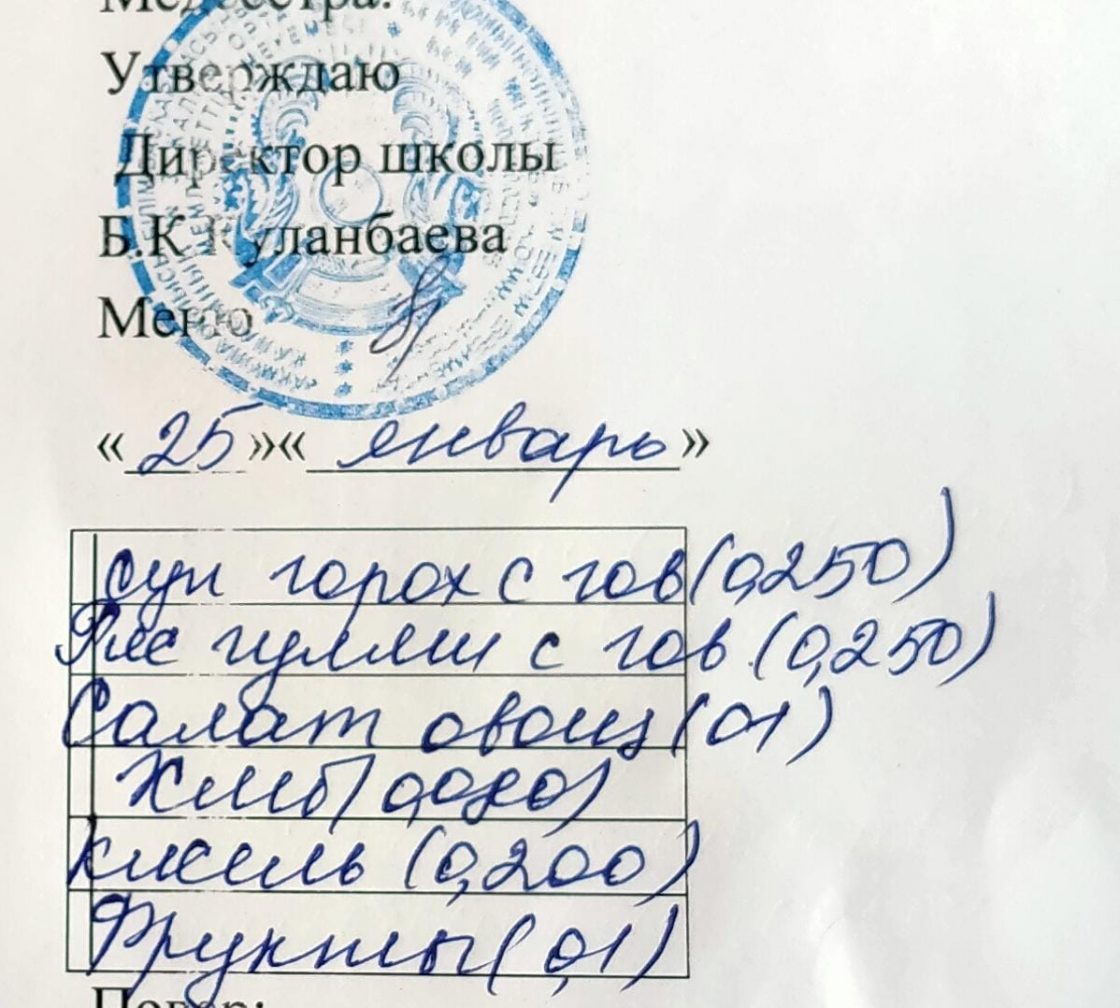 Медсестра:
Утверждаю
Директор школы
Б.К Куланбаева
Меню
«25»«январь»
суп горох с гов (0,250)
Рис гуляш с гов (0,250)
Салат овощ (01)
Хлеб (0,080)
кисель (0,200)
Фрукты (0,1)
Повар: